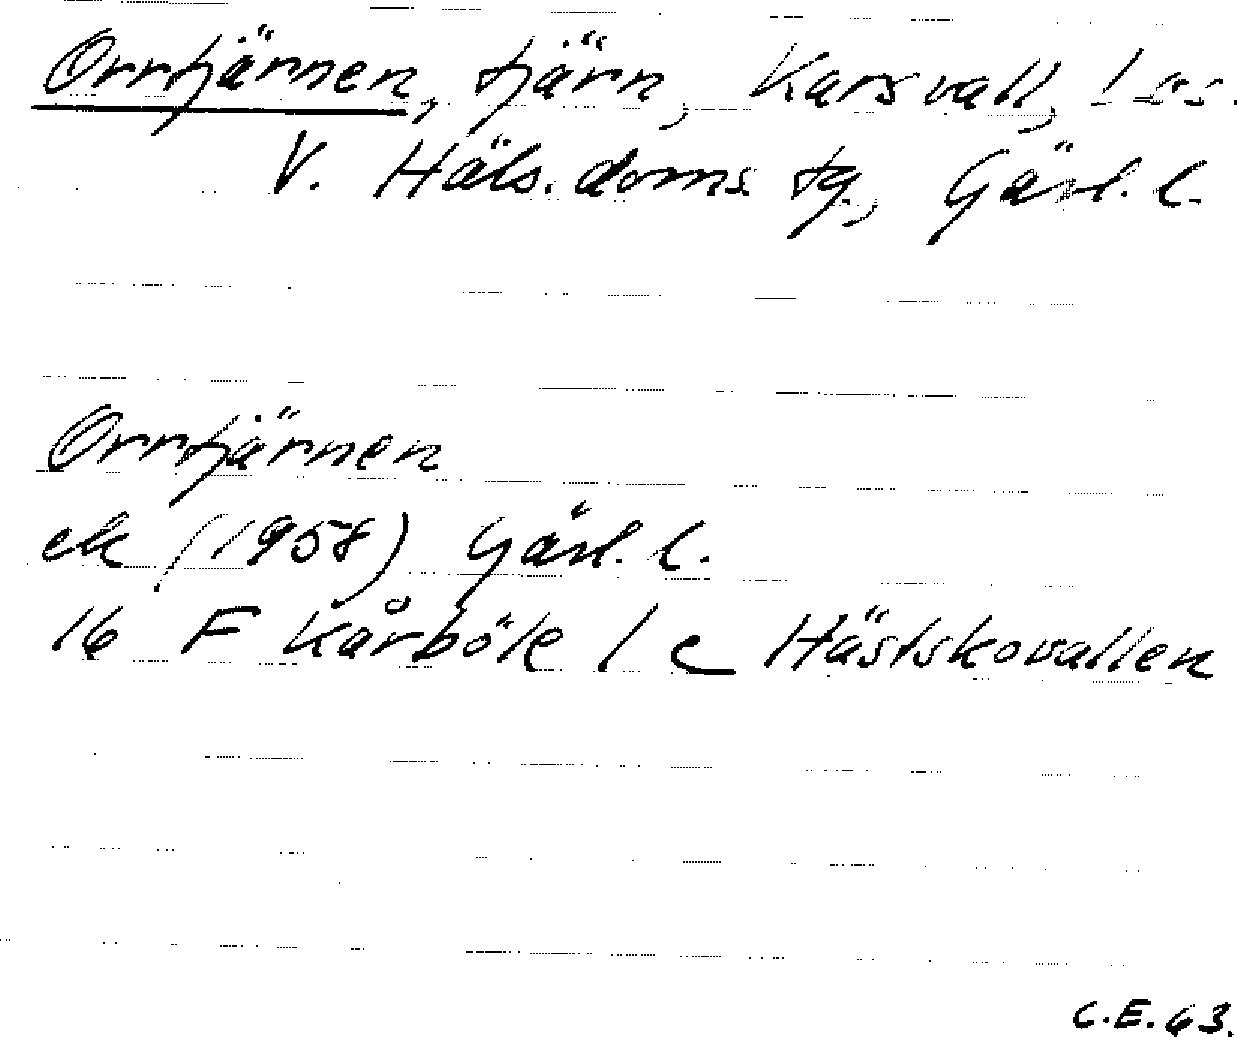 Orrtjärnen, tjärn, Karsvall,
V. Häls. doms. tg., Gävl. l.
Orrtjärnen
ek (1958) Gävl. l.
16 F Kårböle 1 c Hästskovallen
C.E.63.